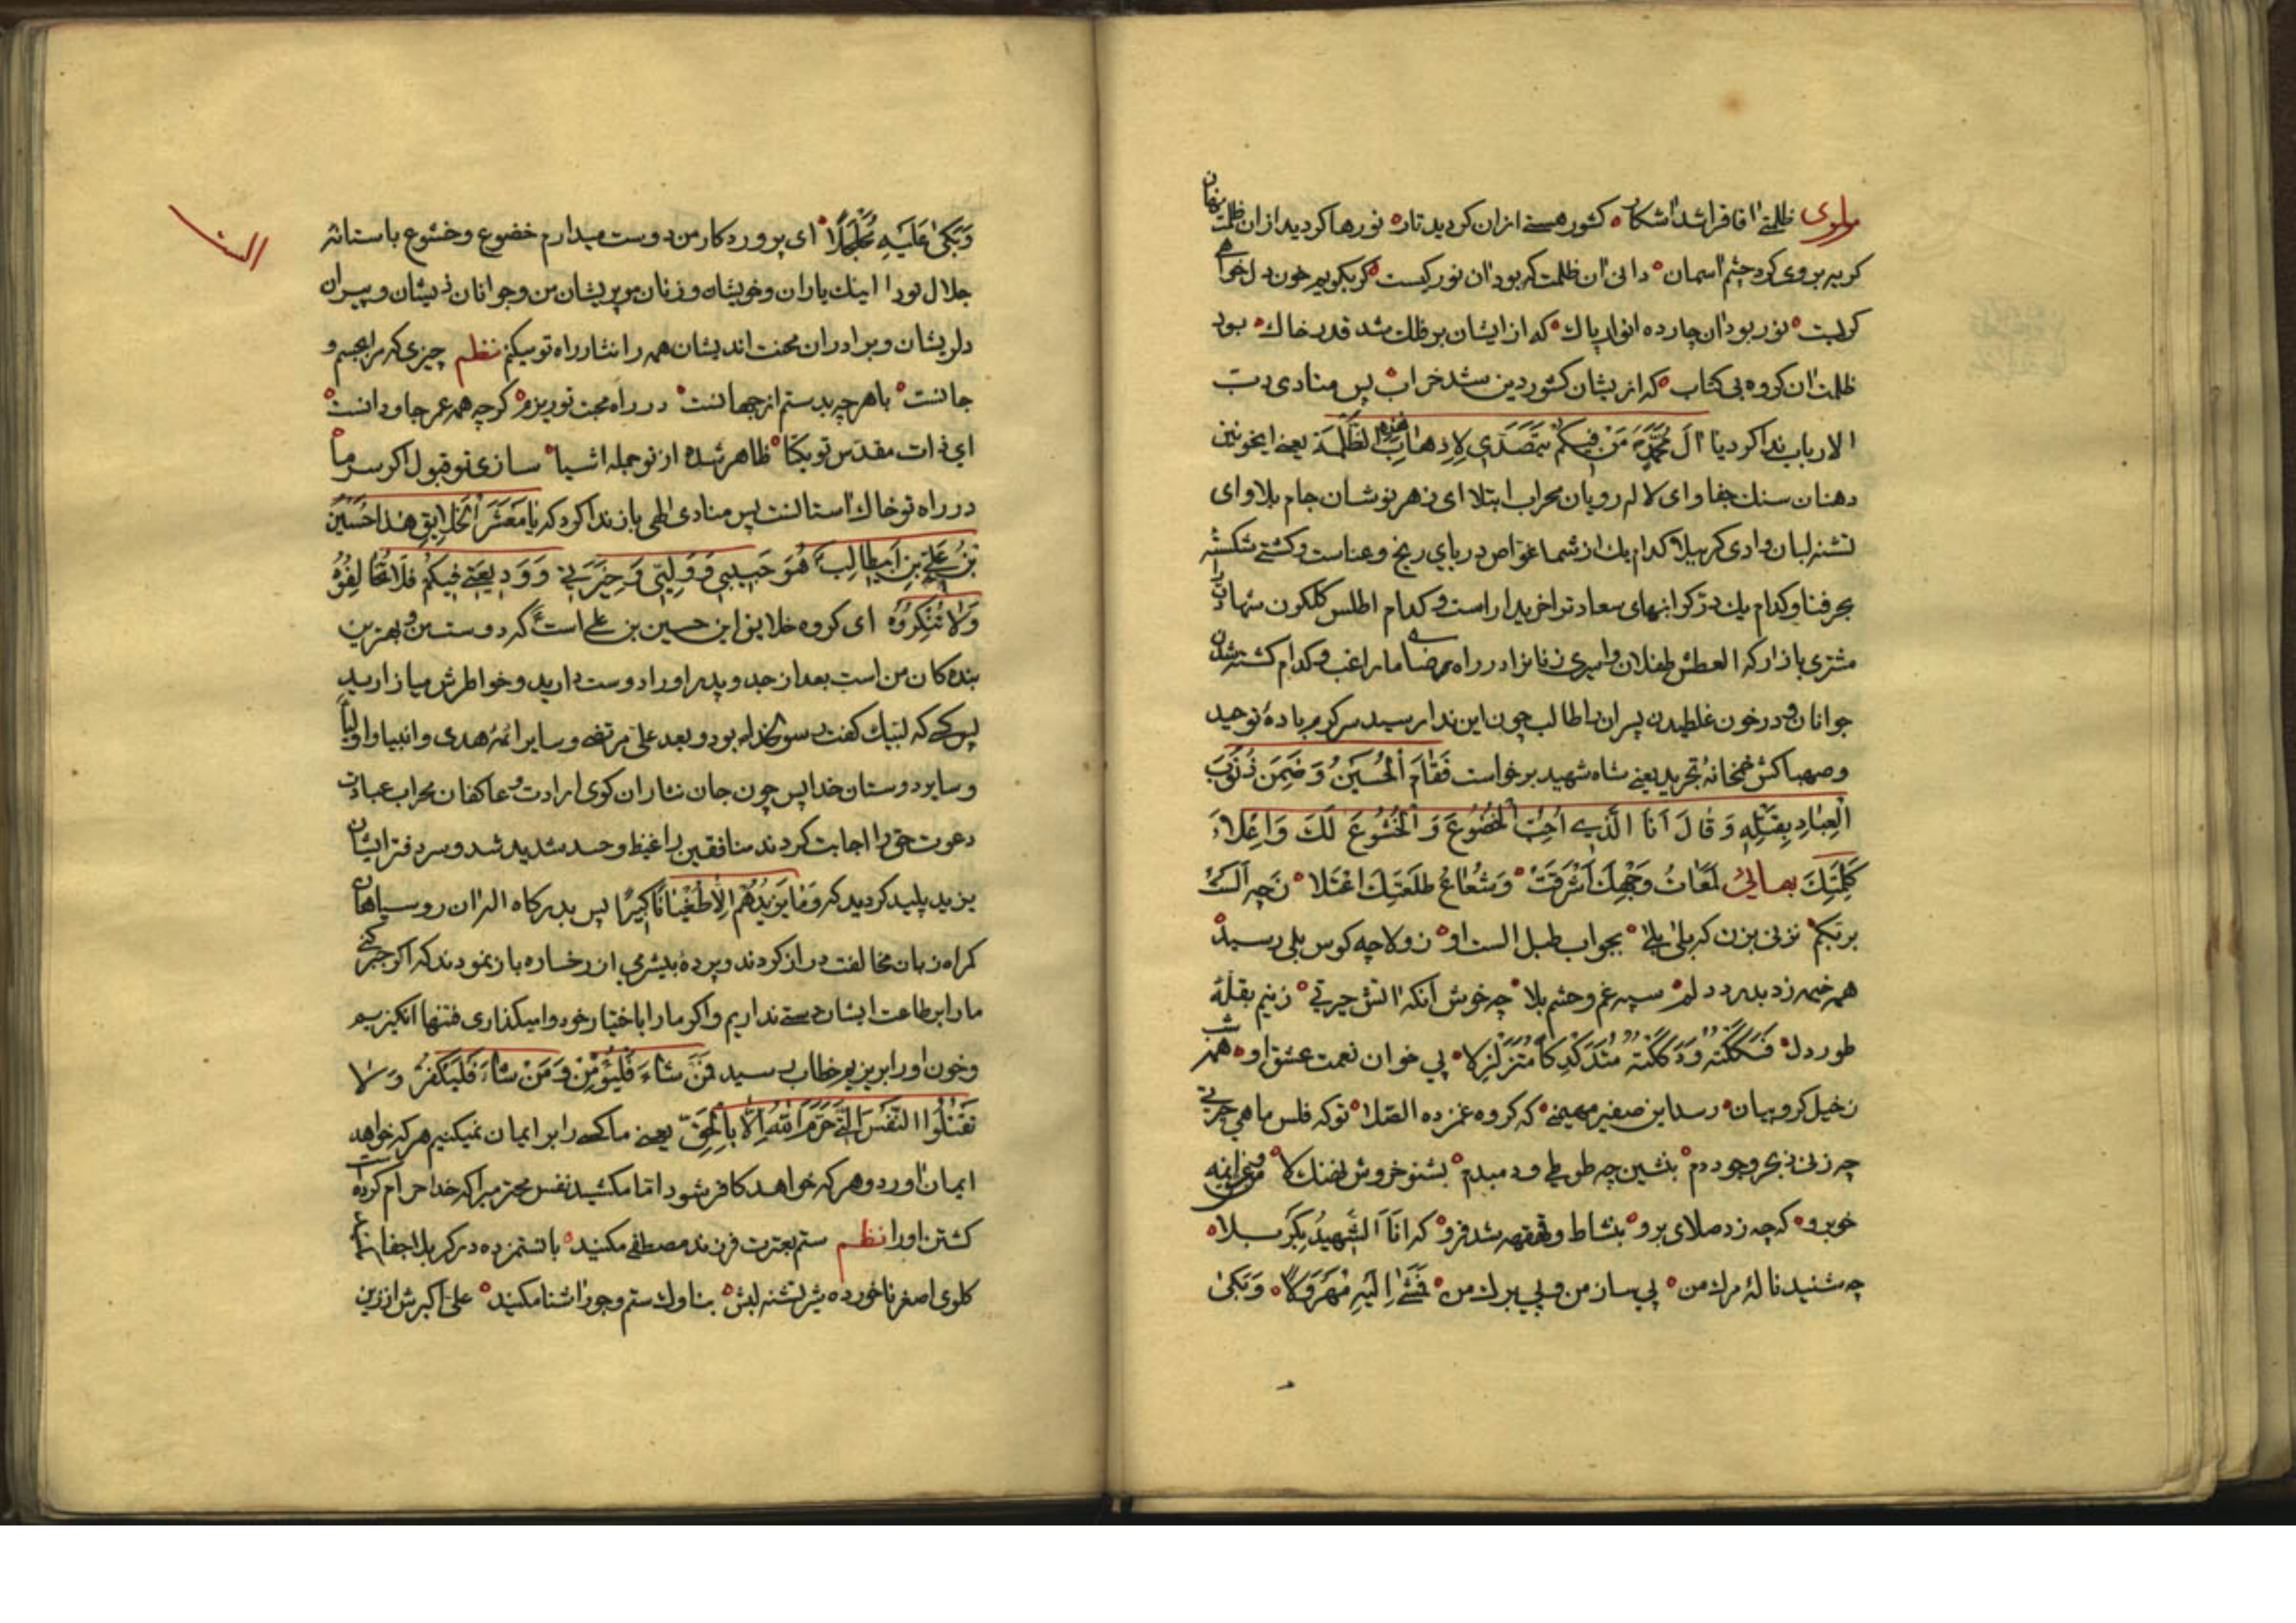 مولوی ظلمتی افاقرا شد اشکار کشور هستی ازان کردید تار نورها کردید ازان ظلمت نهان
کریه بروی کرد چشم اسمان دانی ان ظلمت که بود ان نور کیست کر بکویم خون دل خواهی
کریست نور بود ان چارده انوار پاک که از ایشان بر فلک شد قدر خاک بود
ظلمت ان کروه بی کتاب که ازیشان کشور دین شد خراب پس منادی رب
الارباب ندا کرد یا الَ مُحَمَّدٍ مَنْ فیکُمْ یَتَصَدّی لِاِذهابِ هٰذِهِ الظُّلْمَة یعنی ای خونین
دهنان سنک جفا و ای لاله رویان محراب ابتلا ای زهر نوشان جام بلا و ای
تشنه لبان وادی کربلا کدام یک از شما غواص دریای رنج و عناست و کشتی شکسته
بحر فنا و کدام یک در کرانبهای سعادترا خریدار است و کدام اطلس کلکون شهادت را
مشتری بازار که العطش طفلان و اسیری زنانرا در راه رضای ما راغب و کدام کشته شدن
جوانان و در خون غلطیدن پسران را طالب چون این ندا رسید سرکرم باده توحید
و صهباکش خمخانه تجرید یعنی شاه شهید برخواست فَقٰامَ اْلحُسَیْنُ وَ ضَمِنَ ذُنُوبَ
الْعِبٰادِ بِقَتْلِهِ وَ قٰالَ اَنَا الَّذی اُحِبُّ الْخُضُوعَ وَ الْخُشُوعَ لَکَ وَ اِعْلاٰءَ
کَلِمَتِکَ بهائی لَمَعٰاتُ وَجْهِکَ اَشْرَقَتْ وَ شُعٰاعُ طَلْعَتِکَ اعْتَلا زچه الست
بربکم نزنی بزن که بلی بلی بجواب طبل الست او ز ولا چه کوس بلی رسید
همه خیمه زد بدر دلم سپه غم و حشم بلا چه خوش آنکه اتش حیرتی زنیم بقلهٔ
طور دل فَسَکَکْتُهُ وَ دَکَکْتُهُ مُتَدَکْدِکاً مُتَزَلْزِلا پی خوان نعمت عشق او همه شب
زخیل کروبیان رسد این صفیر مهیمنی که کروه غمزده الصلا توکه فلس ماهی حیرتی
چه زنی ز بحر وجود دم بنشین چه طوطی و دمبدم بشنو خروش نهنک لا
خوبرو که چه زد صلای برو بنشاط و قهقهه شد فرو که اَنَا الشَّهیدُ بِکَرْبَلا
چه شنید نالهٔ مرک من پی ساز من و پی برک من فَمَشیٰ اِلَیْهِ مُهَرْوِلاً وَ بَکیٰ
وَ بَکیٰ عَلَیْهِ مُجَلْجِلاً ای پروردکار من دوست میدارم خضوع و خشوع باستانه
جلال تو را اینک یاران و خویشان و زنان موپریشان من و جوانان ذیشان و پیران
دلریشان و برادران محنت اندیشان همه را نثار راه تو میکنم نظم چیزی که مرا بجسم و
جانست با هرچه بدستم از جهانست در راه محبت تو ریزم کر چه همه عمر جاودانست
ای ذات مقدس تو یکتا ظاهر شده از تو جمله اشیا سازی تو قبول اکر سر ما
در راه تو خاک استانست پس منادی الهی باز ندا کرد که یٰا مَعْشَرَ اْلخَلایِقِ هٰذا حُسَیْنُ
بْنُ عَلِیِّ بْنِ اَبیطالِب هُوَ حَبیبی وَ وَلِیّی وَ خِیَرَتی وَ وَدیعَتی فیکُمْ فَلاٰ تُخٰالِفُوهُ
وَلاٰ تُنْکِرُوهُ ای کروه خلایق این حسین بن علی است که دوست من و بهترین
بنده کان من است بعد از جد و پدر او را دوست دارید و خواطرش میازارید
پس کسی که لبیک گفت رسول خدا بود و بعد علی مرتضی و سایر ائمه هدی و انبیا و اولیا
و سایر دوستان خدا پس چون جان نثاران کوی ارادت و عاکفان محراب عبادت
دعوت حق را اجابت کردند منافقین را غیظ و حسد شدید شد و سردفتر ایشان
یزید پلید کردید که وَ مٰا یَزیدُهُمْ اِلاّٰ طُغْیٰانًا کَبیرًا پس بدرکاه اله ان روسیاهان
کمراه زبان مخالفت دراز کردند و پرده بیشرمی از رخساره باز نمودند که اکر جبر کنی
ما را بر طاعت ایشان دستی نداریم و اکر ما را باختیار خود وامیکذاری فتنها انکیزیم
و خون او را بریزیم خطاب رسید فَمَنْ شٰاءَ فَلْیُؤْمِنْ وَ مَنْ شٰاءَ فَلْیَکْفُرْ وَ لاٰ
تَقْتُلُوا النَّفْسَ الَّتی حَرَّمَ اللّٰهُ اِلاّٰ بِاْلحَقِّ یعنی ما کسی را بر ایمان نمیکنیم هر که خواهد
ایمان اورد و هر که خواهد کافر شود اما مکشید نفس محترمیرا که خدا حرام کرده است
کشتن او را نظم ستم بعترت فرزند مصطفی مکنید باین ستمزده در کربلا جفا مکنید
کلوی اصغر ناخورده شیر تشنه لبش بناوک ستم و جور اشنا مکنید علی اکبرش از زین